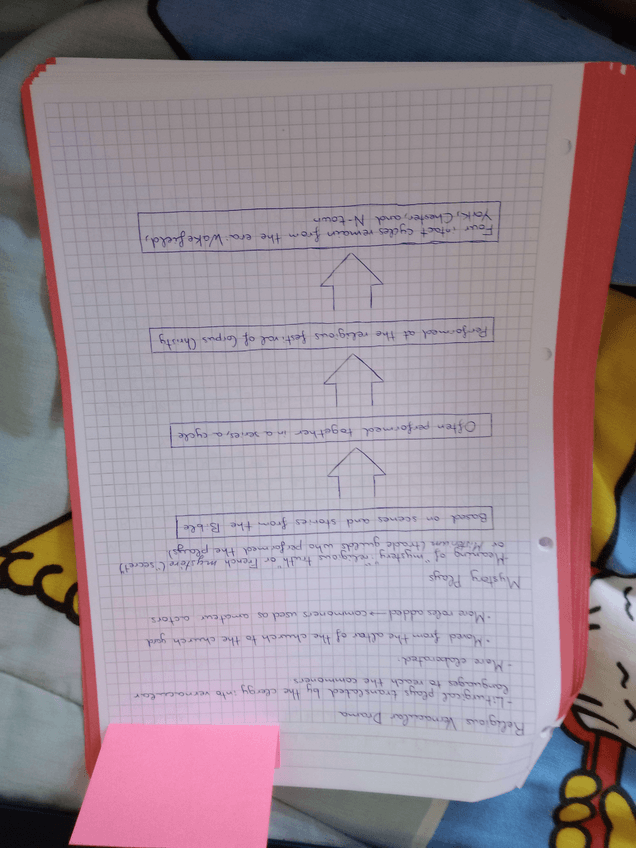 Religious Vernacular Drama
- Liturgical plays translated by the clergy into vernacular
languages to reach the commoners
- More elaborated.
- Moved from the altar of the church to the church yard
- More roles added → commoners used as amateur actors
Mystery Plays
Meaning of "mystery": "religious truth" or French mystère ("secret")
or (trade guilds who performed the plays)
Based on scenes and stories from the Bible
Often performed together in a series, a cycle
Performed at the religious festival of Corpus Christy
Four intact cycles remain from the era: Wakefield,
York, Chester, and N-town